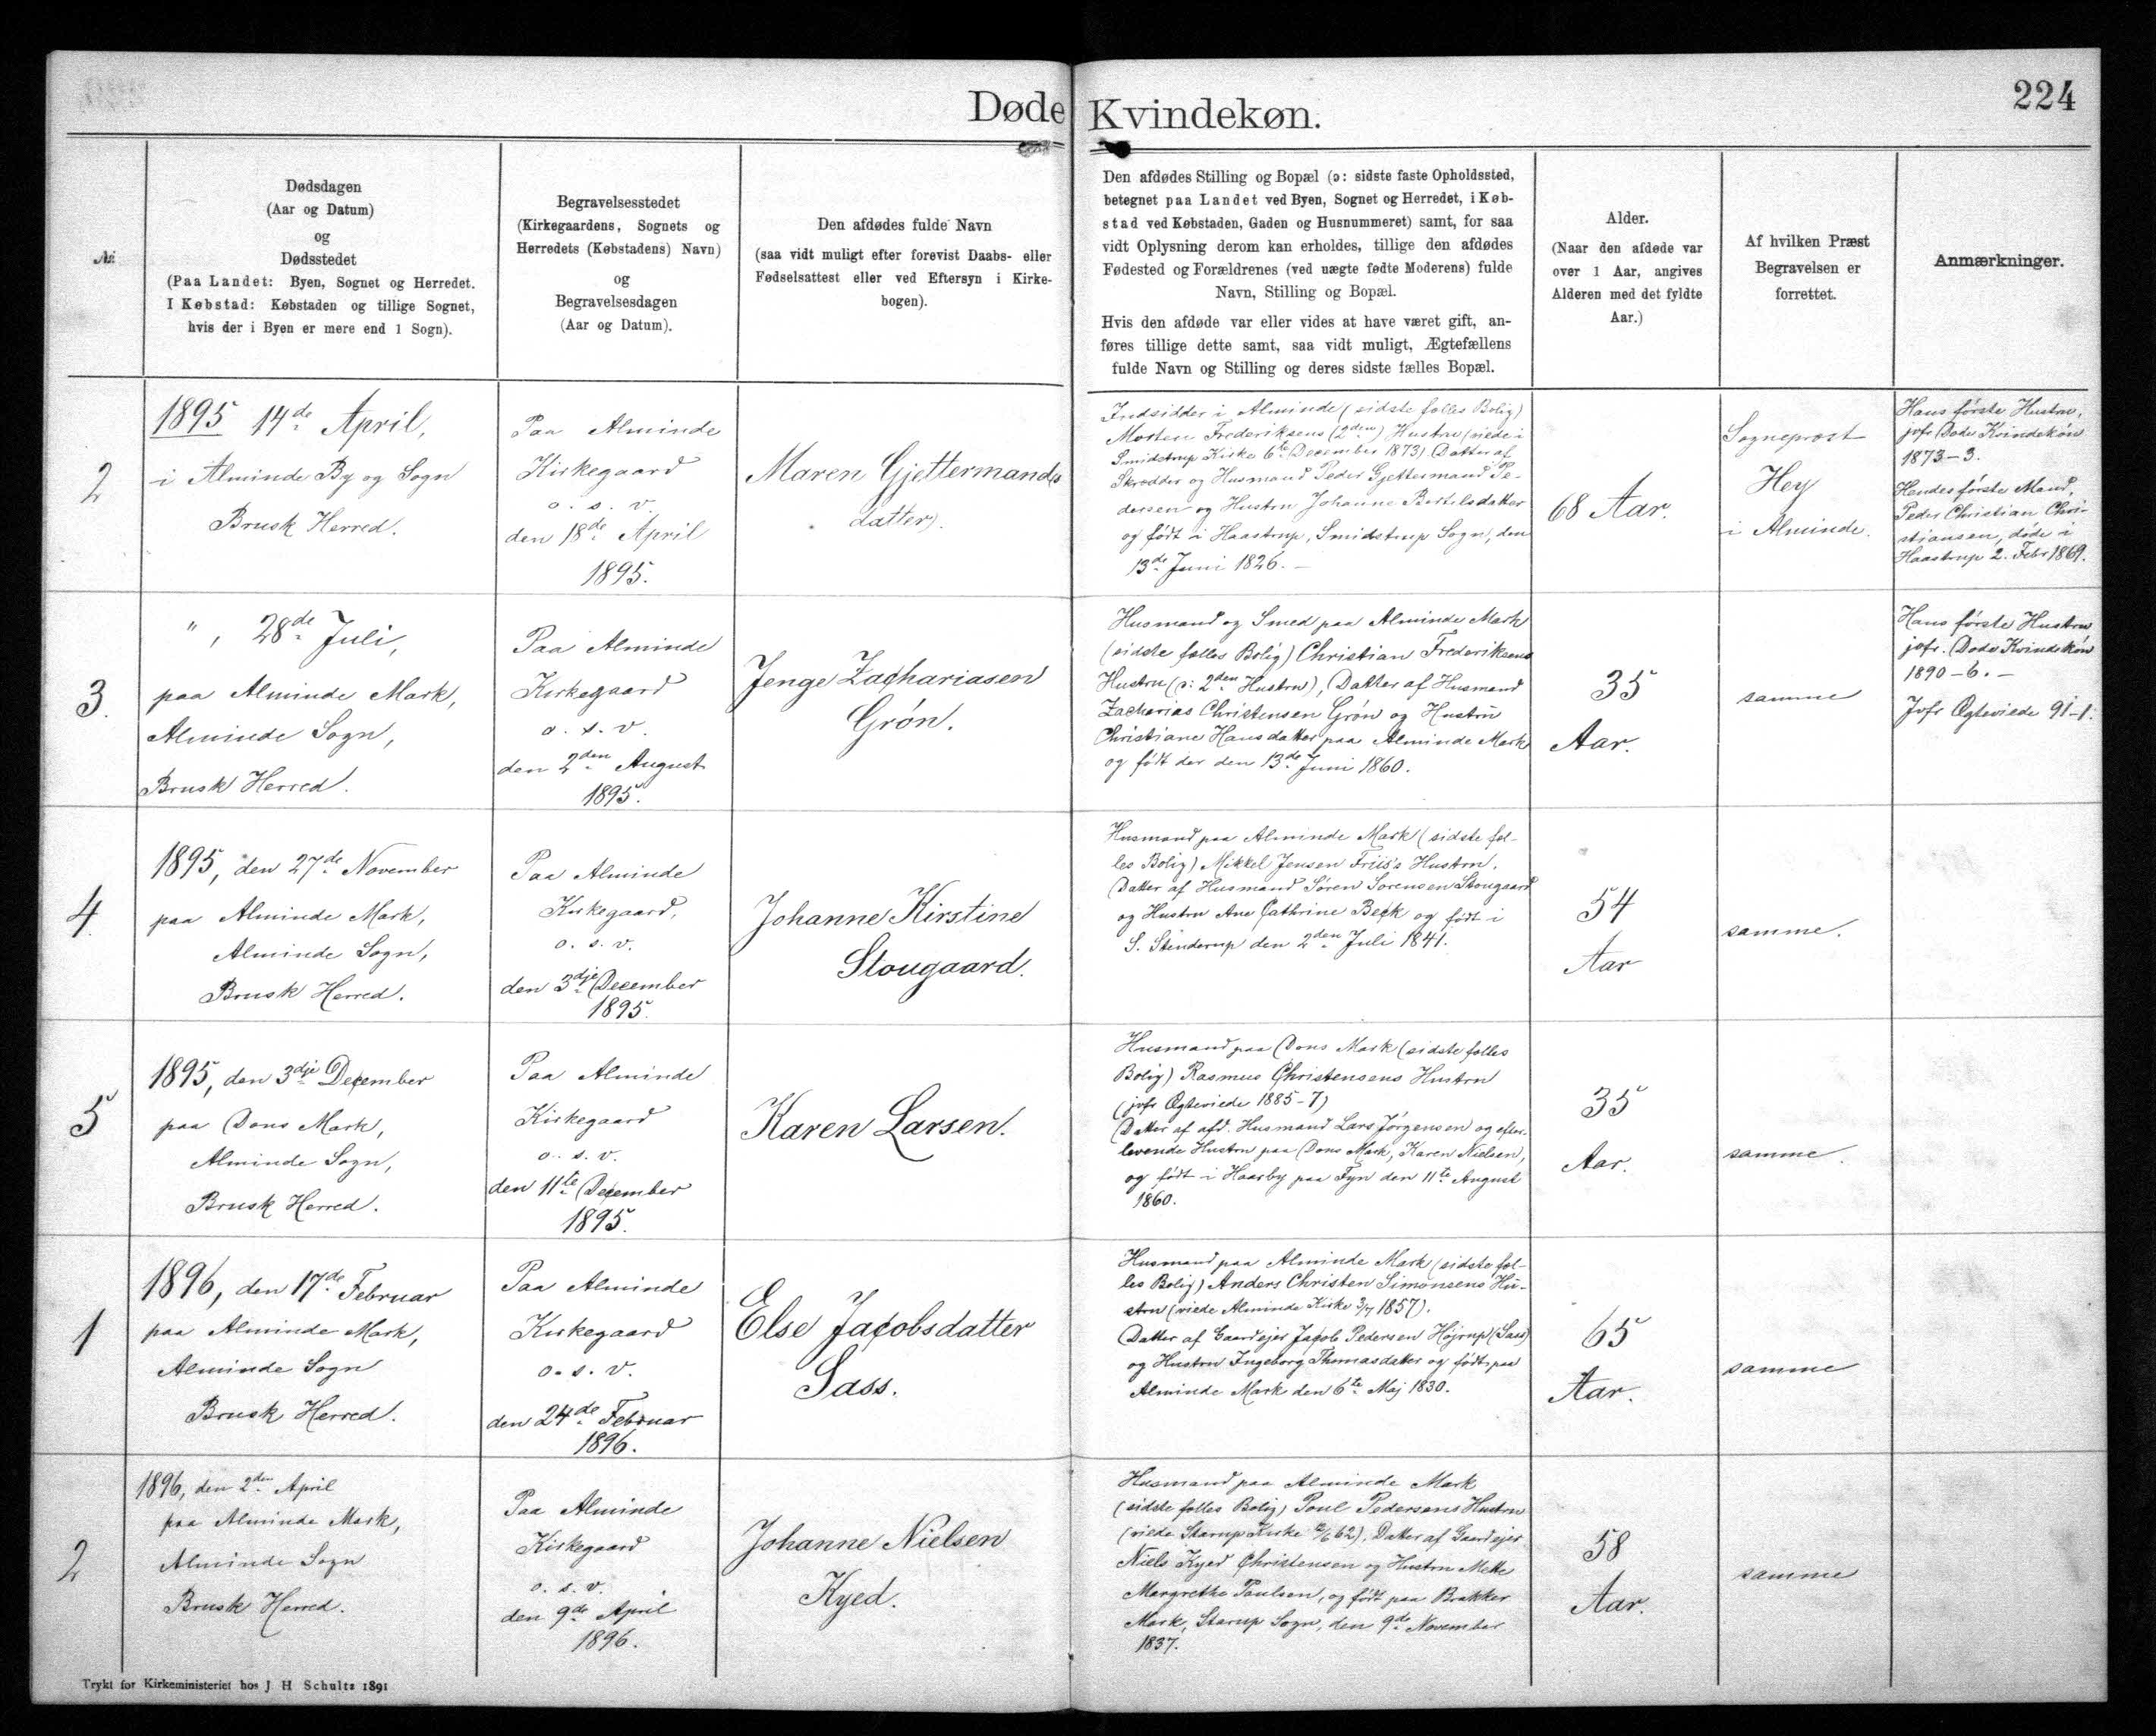 Døde Kvindekøn.
224
№
Dødsdagen
(Aar og Datum)
og
Dødsstedet
(Paa Landet: Byen, Sognet og Herredet.
I Købstad: Købstaden og tillige Sognet,
hvis der i Byen er mere end 1 Sogn).
Begravelsesstedet
(Kirkegaardens, Sognets og
Herredets (Købstadens) Navn)
og
Begravelsesdagen
(Aar og Datum).
Den afdødes fulde Navn
(saa vidt muligt efter forevist Daabs- eller
Fødselsattest eller ved Eftersyn i Kirke-
bogen).
Den afdødes Stilling og Bopæl (ɔ: sidste faste Opholdssted,
betegnet paa Landet ved Byen, Sognet og Herredet, i Køb-
stad ved Købstaden, Gaden og Husnummeret) samt, for saa
vidt Oplysning derom kan erholdes, tillige den afdødes
Fødested og Forældrenes (ved uægte fødte Moderens) fulde
Navn, Stilling og Bopæl.
Hvis den afdøde var eller vides at have været gift, an-
føres tillige dette samt, saa vidt muligt, Ægtefællens
fulde Navn og Stilling og deres sidste fælles Bopæl.
Alder.
(Naar den afdøde var
over 1 Aar, angives
Alderen med det fyldte
Aar.)
Af hvilken Præst
Begravelsen er
forrettet.
Anmærkninger.
2
1895 14de April,
i Alminde By og Sogn
Brusk Herred.
Paa Alminde
Kirkegaard
o. s. v.
den 18de April
1895.
Maren Gjettermands
datter).
Indsidder i Alminde (sidste fælles Bolig)
Morten Frederiksens (2den) Hustru (viede i
Smidstrup Kirke 6te December 1873). Datter af
Skrædder og Husmand Peder Gjettermand Pe-
dersen og Hustru Johanne Bertelsdatter
og født i Haastrup, Smidstrup Sogn, den
13de Juni 1826. –
68 Aar.
Sognepræst
Hey
i Alminde.
Hans første Hustru,
jvfr Døde Kvindekøn
1873–3.
Hendes første Mand,
Peder Christian Chri-
stiansen, døde i
Haastrup 2. Febr 1869.
3.
", 28de Juli,
paa Alminde Mark,
Alminde Sogn,
Brusk Herred.
Paa Alminde
Kirkegaard
o. s. v.
den 2den August
1895.
Jenge Zachariasen
Grøn.
Husmand og Smed paa Alminde Mark
(sidste fælles Bolig) Christian Frederiksens
Hustru (ɔ: 2den Hustru), Datter af Husmand
Zacharias Christensen Grøn og Hustru
Christiane Hansdatter paa Alminde Mark
og født der den 13de Juni 1860.
35
Aar.
samme
Hans første Hustru
jvfr. Døde Kvindekøn
1890–6. –
Jvfr Ægteviede 91–1.
4.
1895, den 27de November
paa Alminde Mark,
Alminde Sogn,
Brusk Herred.
Paa Alminde
Kirkegaard,
o. s. v.
den 3dje December
1895.
Johanne Kirstine
Stougaard.
Husmand paa Alminde Mark (sidste fæl-
les Bolig) Mikkel Jensen Friis's Hustru.
Datter af Husmand Søren Sørensen Stougaard
og Hustru Ane Cathrine Beck og født i
S. Stenderup den 2den Juli 1841.
54
Aar
samme.
5
1895, den 3dje December
paa Dons Mark,
Alminde Sogn,
Brusk Herred.
Paa Alminde
Kirkegaard
o. s. v.
den 11te December
1895.
Karen Larsen.
Husmand paa Dons Mark (sidste fælles
Bolig) Rasmus Christensens Hustru
(jvfr Ægteviede 1885–7)
Datter af afd. Husmand Lars Jørgensen og efter-
levende Hustru paa Dons Mark, Karen Nielsen,
og født i Haarby paa Fyn den 11te August
1860.
35
Aar.
samme.
1
1896, den 17de Februar
paa Alminde Mark,
Alminde Sogn
Brusk Herred.
Paa Alminde
Kirkegaard
o. s. v.
den 24de Februar
1896.
Else Jacobsdatter
Sass.
Husmand paa Alminde Mark (sidste fæl-
les Bolig) Anders Christen Simonsens Hu-
stru (viede Alminde Kirke 3/7 1857).
Datter af Gaardejer Jacob Pedersen Højrup (Sass)
og Hustru Ingeborg Thomasdatter og født paa
Alminde Mark den 6te Maj 1830.
65
Aar.
samme
2
1896, den 2den April
paa Alminde Mark,
Alminde Sogn
Brusk Herred.
Paa Alminde
Kirkegaard
o. s. v.
den 9de April
1896.
Johanne Nielsen
Kyed.
Husmand paa Alminde Mark
(sidste fælles Bolig) Poul Pedersens Hustru
(viede Starup Kirke 62). Datter af Gaardejer
Niels Kyed Christensen og Hustru Mette
Margrethe Paulsen, og født paa Brakker
Mark, Starup Sogn, den 9de November
1837.
58
Aar.
samme
Trykt for Kirkeministeriet hos J H Schultz 1891